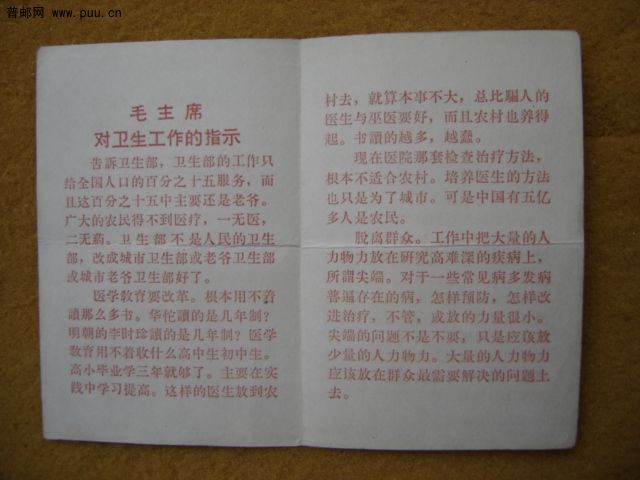 普邮网 www.puu.cn
毛主席
对卫生工作的指示
告訴卫生部，卫生部的工作只
给全国人口的百分之十五服务，而
且这百分之十五中主要还是老爷。
广大的农民得不到医疗，一无医，
二无药。卫生部不是人民的卫生
部，改成城市卫生部或老爷卫生部
或城市老爷卫生部好了。
医学敎育要改革。根本用不着
讀那么多书。华佗讀的是几年制？
明朝的李时珍讀的是几年制？医学
敎育用不着收什么高中生初中生。
高小毕业学三年就够了。主要在实
践中学习提高。这样的医生放到农
村去，就算本事不大，总比騙人的
医生与巫医要好，而且农村也养得
起。书讀的越多，越蠢。
现在医院那套检查治疗方法，
根本不适合农村。培养医生的方法
也只是为了城市。可是中国有五亿
多人是农民。
脫离群众。工作中把大量的人
力物力放在研究高难深的疾病上，
所謂尖端。对于一些常见病多发病
普遍存在的病，怎样预防，怎样改
进治疗，不管，或放的力量很小。
尖端的问题不是不要，只是应该放
少量的人力物力。大量的人力物力
应该放在群众最需要解决的问题上
去。